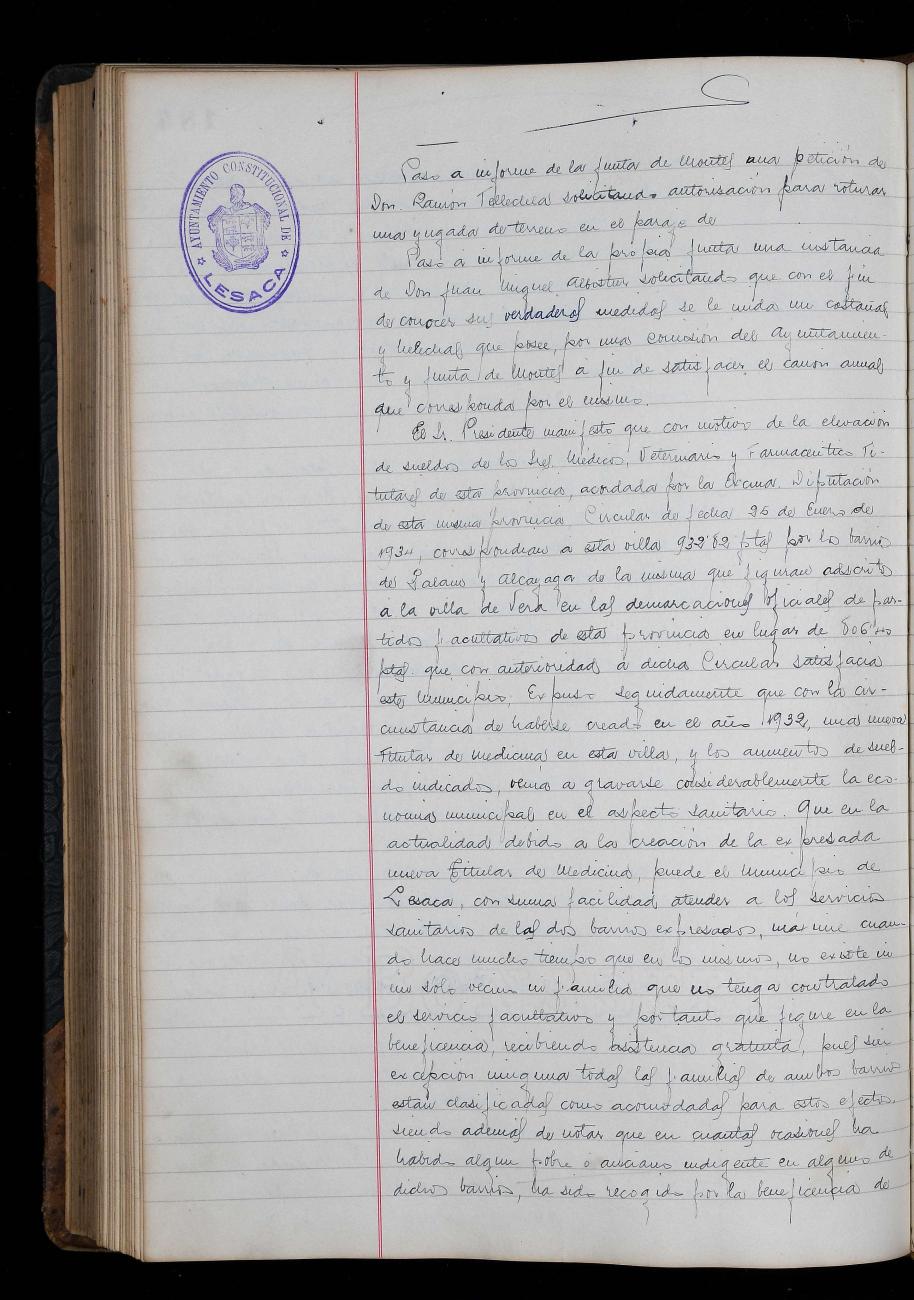 AYUNTAMIENTO CONSTITUCIONAL DE
LESACA
Pasó a informe de la Junta de Montes una petición de
Don Ramón Tellechea solicitando autorisación para roturar
una yugada de terreno en el paraje de
Pasó a informe de la propia Junta una instancia
de Don Juan Miguel solicitando que con el fin
de conocer sus verdaderas medidas se le mida un castañal
y helechal que posee, por una comisión del Ayuntamien-
to y Junta de Montes a fin de satisfacer el canon anual
que corresponda por el mismo.
El Sr. Presidente manifestó que con motivo de la elevación
de sueldos de los Sres. Médicos, Veterinario y Farmaceutico Ti-
tulares de esta provincia, acordada por la Excma. Diputación
de esta misma provincia Circular de fecha 26 de Enero de
1934, correspondian a esta villa 932'82 ptas por los barrios
de Zalain y Alcayaga de la misma que figuran adscritos
a la villa de Vera en las demarcaciones oficiales de par-
tidos facultativos de esta provincia en lugar de 806'40
ptas. que con anterioridad a dicha Circular satisfacia
este municipio. Expuso seguidamente que con la cir-
cunstancia de haberse creado en el año 1932, una nueva
Titular de medicina en esta villa, y los aumentos de suel-
do indicados, venia a gravarse considerablemente la eco-
nomia municipal en el aspecto sanitario. Que en la
actualidad debido a la creación de la expresada
nueva Titular de Medicina, puede el municipio de
Lesaca, con suma facilidad, atender a los servicios
sanitarios de las dos barrios expresados, máxime cuan-
do hace mucho tiempo que en los mismos, no existe ni
un sólo vecino ni familia que no tenga contratado
el servicio facultativo y por tanto que figure en la
beneficencia, recibiendo asistencia gratuita, pues sin
excepción ninguna todas las familias de ambos barrios
están clasificadas como acomodadas para estos efectos,
siendo ademas de notar que en cuantas ocasiones ha
habido algun pobre o anciano indigente en alguno de
dichos barrios, ha sido recogido por la beneficencia de